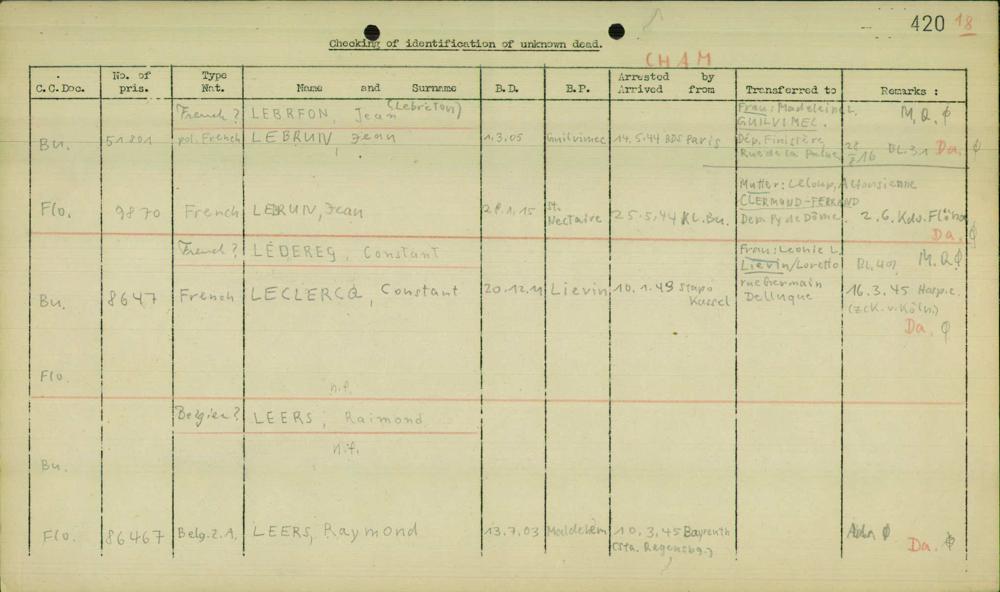 420 18
Checking of identification of unknown dead.
CHAM
C.C.Doc.
No. of pris.
Type Nat.
Name and Surname
B.D.
B.P.
Arrested by
Arrived from
Transferred to
Remarks :
French? LEBRFON, Jean (Lebreton) Frau: Madeleine L. M.Q. ϕ
GUILVIMEC.
Bu. 51801 pol. French LEBRUN Jean 1.3.05 Guilvimec 14.5.44 BDS Paris Dép. Finistère, Da. ϕ
Rue de la
Mutter: Leloup, Alfonsienne
CLERMOND-FERRAND
Flo. 9870 French LEBRUN, Jean 15 St. Nectaire 25.5.44 KL.Bu. Dep. Py de Dôme. 2.6. Kdo. Flöha
Da. ϕ
French? LEDEREG, Constant Frau: Leonie L. M.Q. ϕ
Lievin/Loretto
Bu. 8647 French LECLERCQ, Constant 20.12.11 Lievin 10.1.43 Stapo Kassel rue Germain 16.3.45
(zck. v. Köln.)
Da. ϕ
Flo. n.f.
Belgien? LEERS, Raimond
n.f.
Bu.
Flo. 86467 Belg.z.A. LEERS, Raymond 13.7.03 10.3.45 Bayreuth ϕ
(Sta. Regensbg.) Da. ϕ